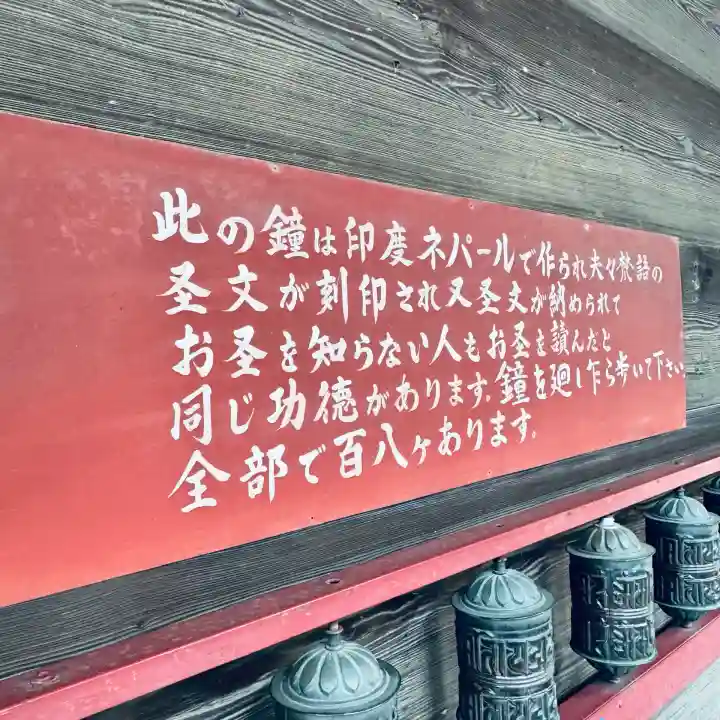 此の鐘は印度ネパールで作られ夫々梵語の
圣文が刻印され又圣文が納められて
お圣を知らない人もお圣を讀んだと
同じ功徳があります。鐘を廻し乍ら歩いて下さい。
全部で百八ヶあります。